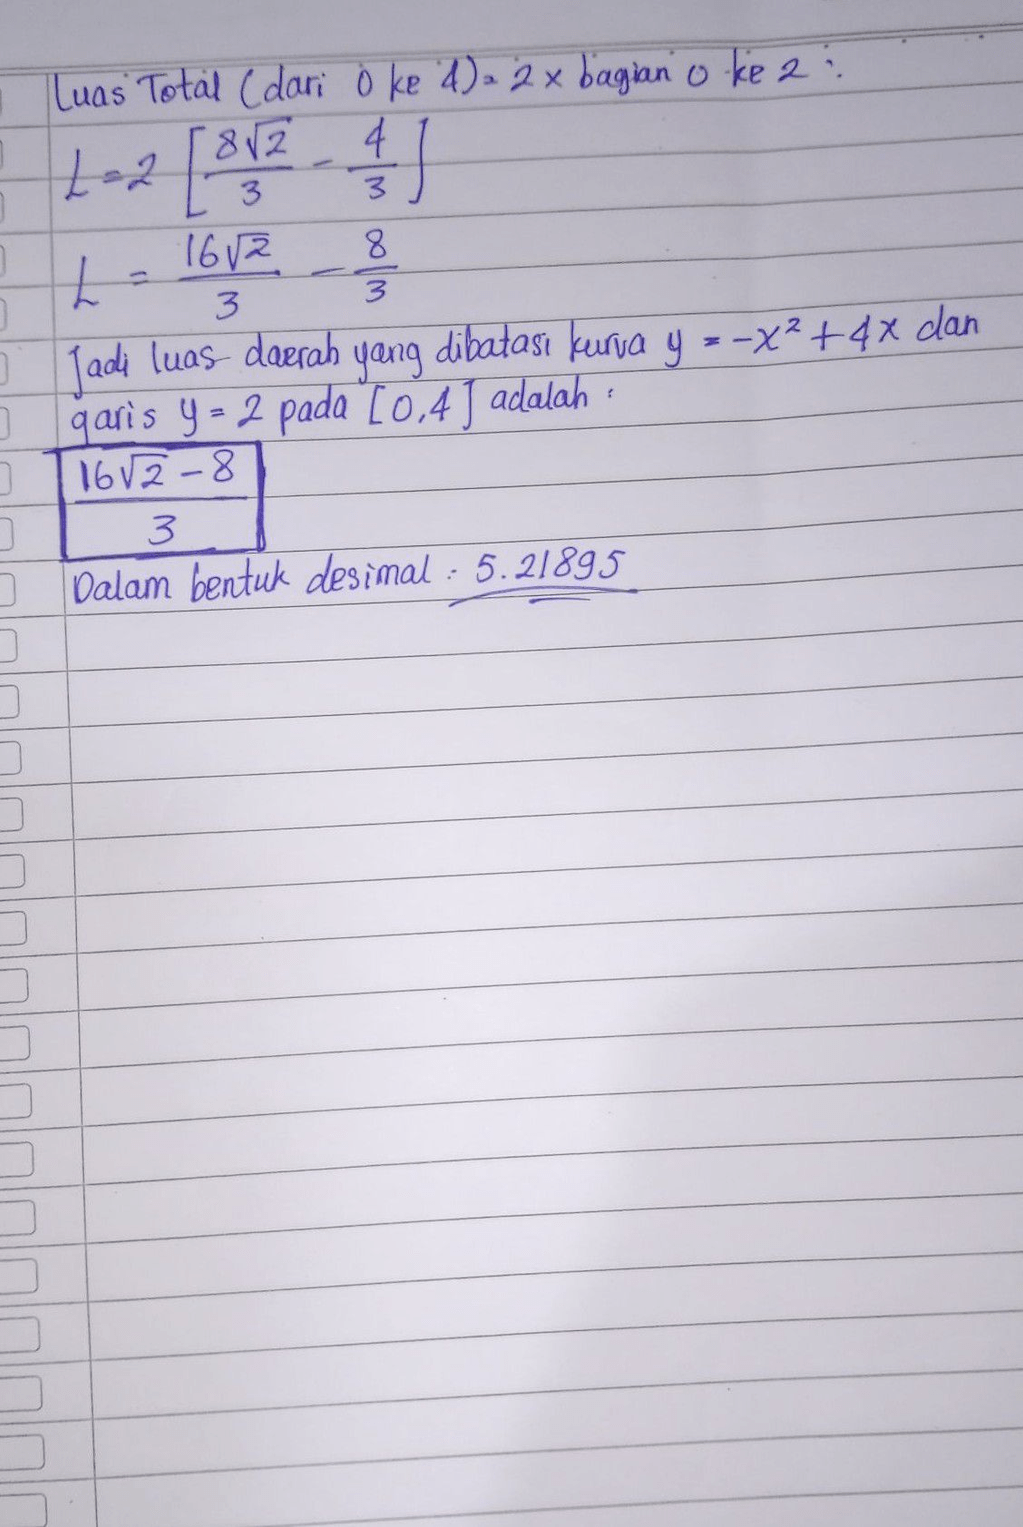 Luas Total (dari 0 ke 4) = 2 x bagian 0 ke 2 :
L = 2 [ 8√2/3 - 4/3 ]
L = 16√2/3 - 8/3
Jadi luas daerah yang dibatasi kurva y = -x² + 4x dan
garis y = 2 pada [0,4] adalah :
16√2 - 8
3
Dalam bentuk desimal : 5.21895